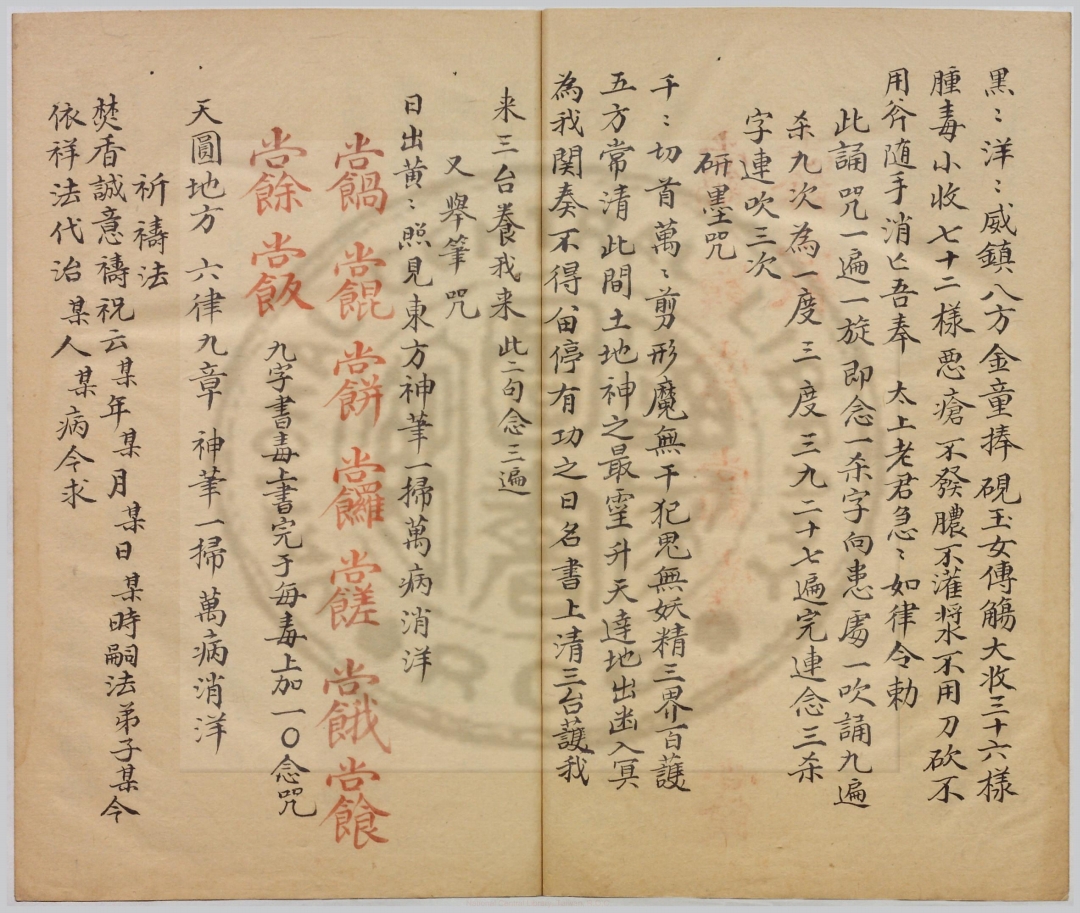 黑〻洋〻威鎮八方金童捧硯玉女傳觴大收三十六樣
腫毒小收七十二樣惡瘡不發膿不灌漿不用刀砍不
用斧随手消亡吾奉 太上老君急〻如律令勅
此誦咒一遍一旋即念一杀字向患處一吹誦九遍
杀九次為一度三度三九二十七遍完連念三杀
字連吹三次
研墨咒
千〻切首萬〻剪形魔無干犯鬼無妖精三界百護
五方常清此間土地神之最靈升天達地出凾入冥
為我関奏不得㽞停有功之日名書上清三台護我
来三台養我来此二句念三遍
又舉筆咒
日出黄〻照見東方神筆一掃萬病消洋
九字書毒上書完于每毒上加一〇念咒
天圓地方 六律九章 神筆一掃萬病消洋
祈禱法
焚香誠意禱祝云某年某月某日某時嗣法弟子某今
依祥法代治某人某病今求